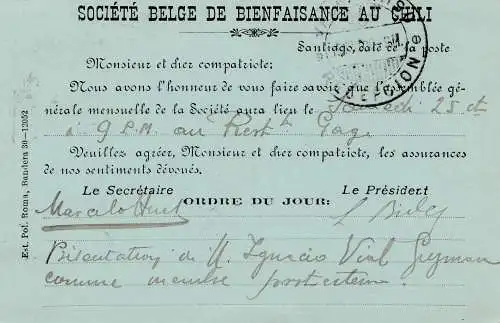 SOCIÉTÉ BELGE DE BIENFAISANCE AU CHILI
Santiago, date de la poste
Monsieur et cher compatriote;
Nous avons l'honneur de vous faire savoir que l'assemblée gé-
nérale mensuelle de la Société aura lieu le Samedi 25 ct
à 9 P.M. au Restt Gage
Veuillez agréer, Monsieur et cher compatriote, les assurances
de nos sentiments dévoués.
Le Secrétaire Le Président
ORDRE DU JOUR:
Marcelo Huet
Présentation de M. Ignacio Vial Guzman
comme membre
Est. Pol. Roma, Bandera 30—12052